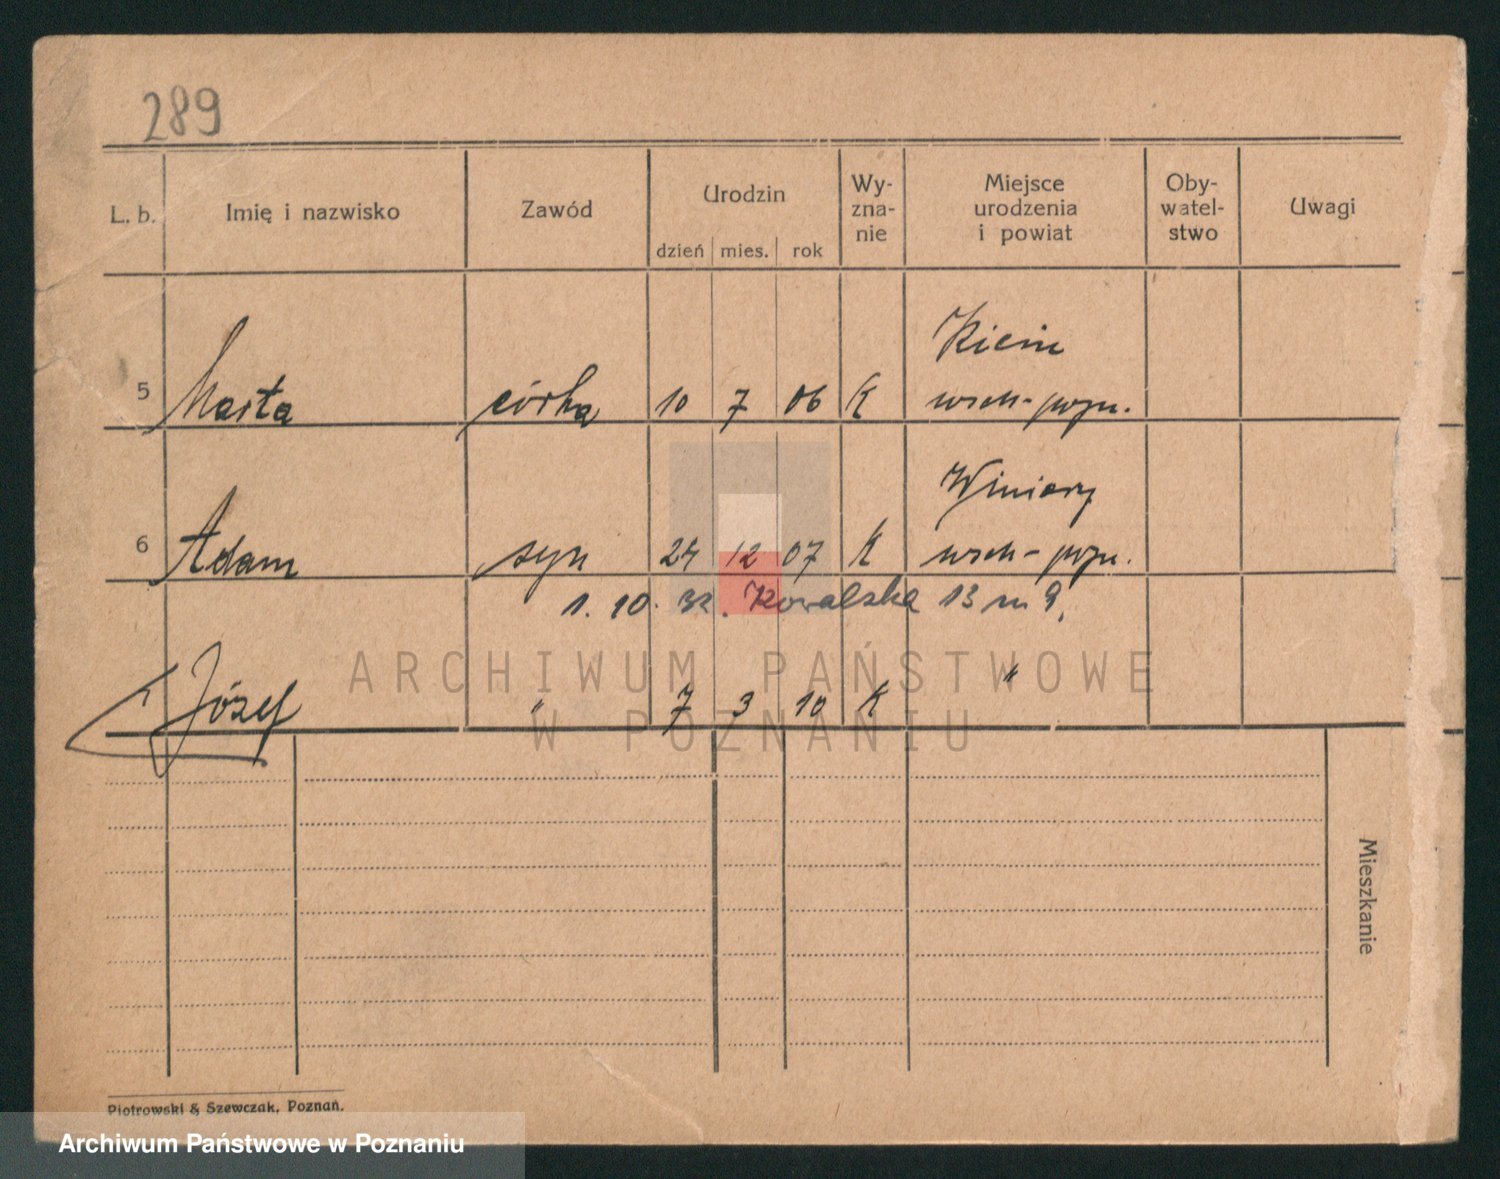 289
L. b. Imię i nazwisko Zawód Urodzin Wy-zna-nie Miejsce urodzenia i powiat Oby-watel-stwo Uwagi
dzień mies. rok
Kicin
5 Marta córka 10 7 06 K wsch-pozn.
Winiary
6 Adam syn 24 12 07 K wsch-pozn.
1. 10. 32. Kowalska 13 m 9.
7 Józef " 7 3 10 K "
ARCHIWUM PAŃSTWOWE
W POZNANIU
Mieszkanie
Piotrowski & Szewczak, Poznań.
Archiwum Państwowe w Poznaniu